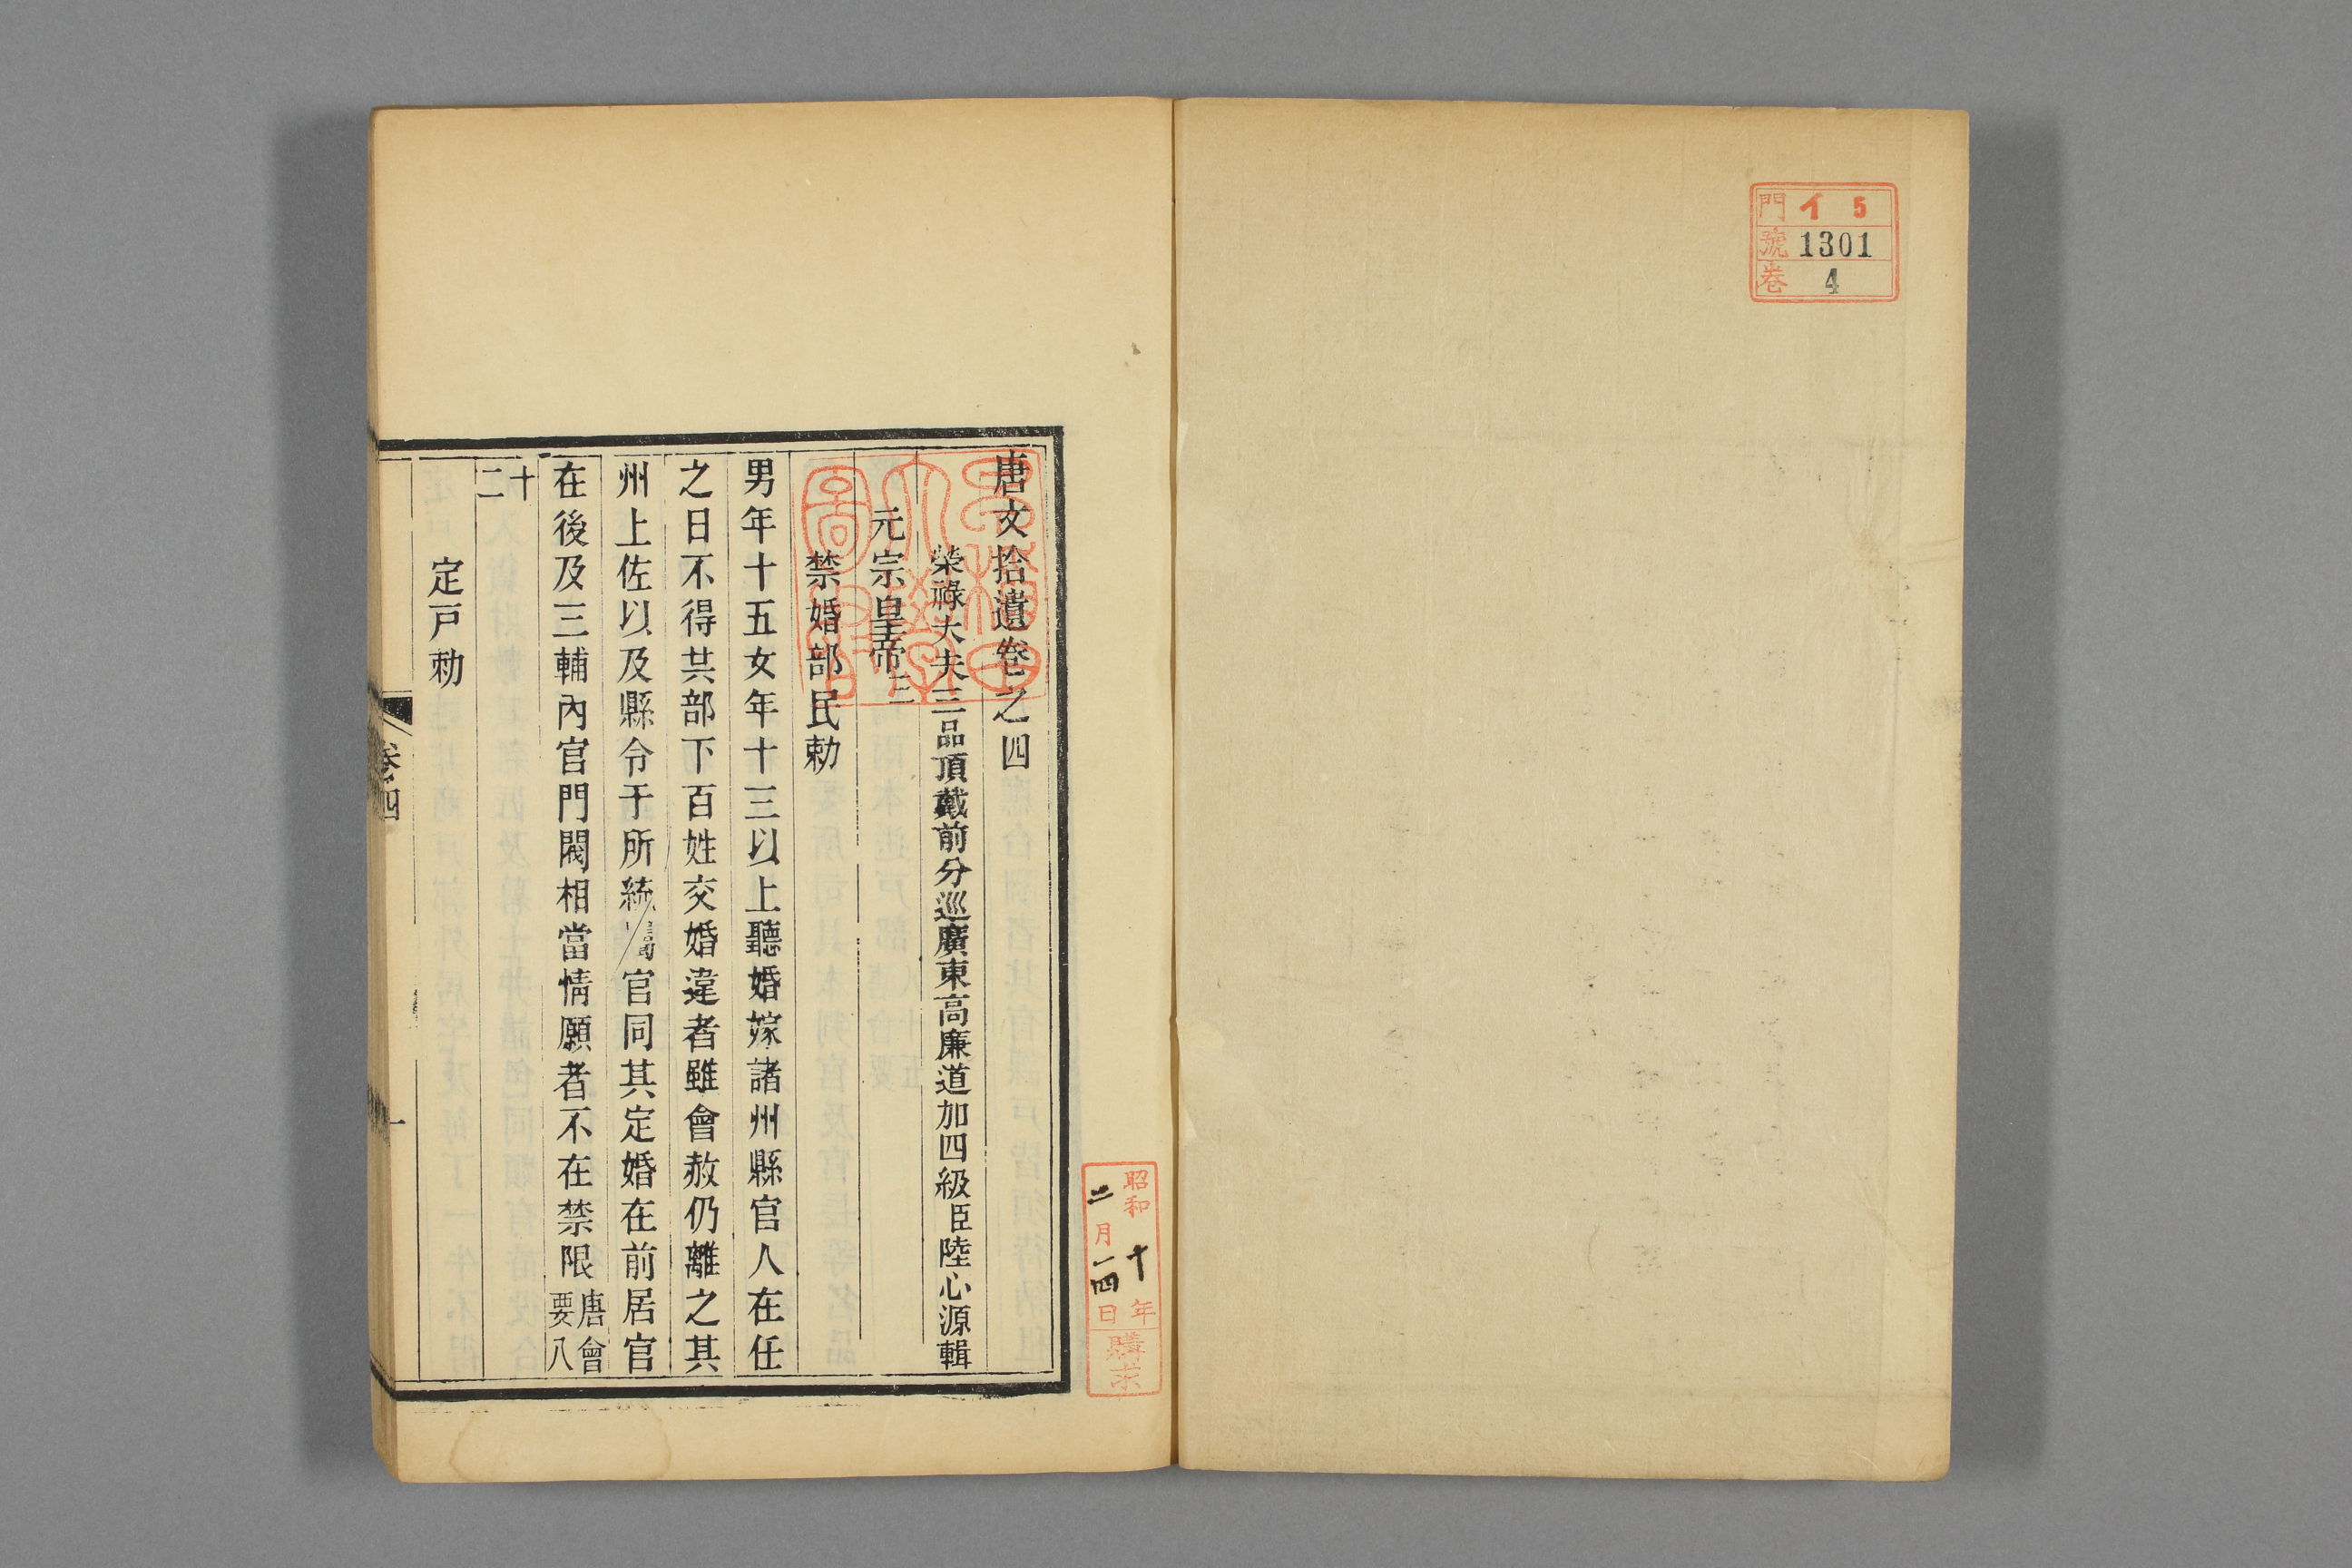 門 イ 5
號 1301
卷 4
唐文拾遺卷之四
榮祿大夫三品頂戴前分巡廣東高廉道加四級臣陸心源輯
元宗皇帝三
禁婚部民勅
男年十五女年十三以上聽婚嫁諸州縣官人在任
之日不得共部下百姓交婚違者雖會赦仍離之其
州上佐以及縣令于所統屬官同其定婚在前居官
在後及三輔內官門閥相當情願者不在禁限唐會要八
十二
定戸勅
卷四
一
昭和十年
二月一四日
購求